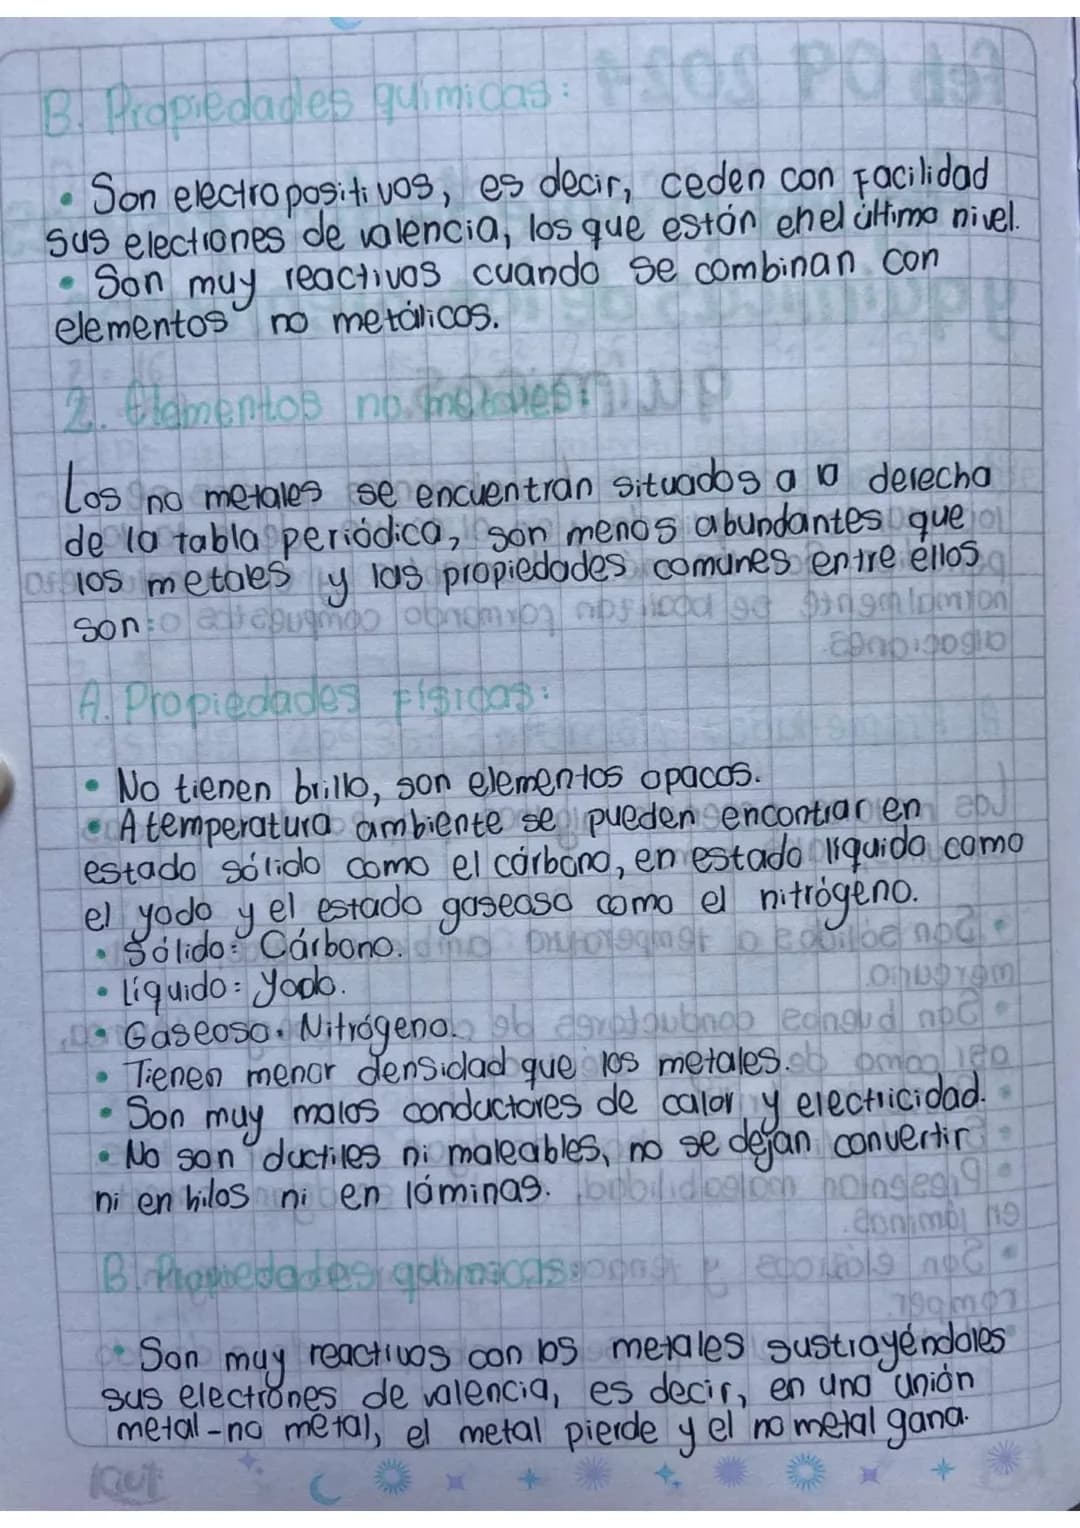 B. Propiedades químicas:
• Son electropositivos, es decir, ceden con facilidad
sus electrones de valencia, los que están en el último nivel.
• Son muy reactivos cuando se combinan con
elementos no metálicos.
2. Elementos no metales:
Los no metales se encuentran situados a la derecha
de la tabla periódica, son menos abundantes que
los metales y las propiedades comunes entre éllos
son:
A. Propiedades físicas:
• No tienen brillo, son elementos opacos.
• A temperatura ambiente se pueden encontrar en
estado sólido como el cárbono, en estado líquido como
el yodo y el estado gaseoso como el nitrógeno.
• Sólido: Cárbono.
• líquido: Yodo.
• Gaseoso. Nitrógeno.
• Tienen menor densidad que los metales.
• Son muy malos conductores de calor y electricidad.
• No son ductiles ni maleables, no se dejan convertir
ni en hilos ni en láminas.
B. Propiedades químicas:
• Son muy reactivos con los metales sustrayéndoles
sus electrones de valencia, es decir, en una unión
metal-no metal, el metal pierde y el no metal gana.